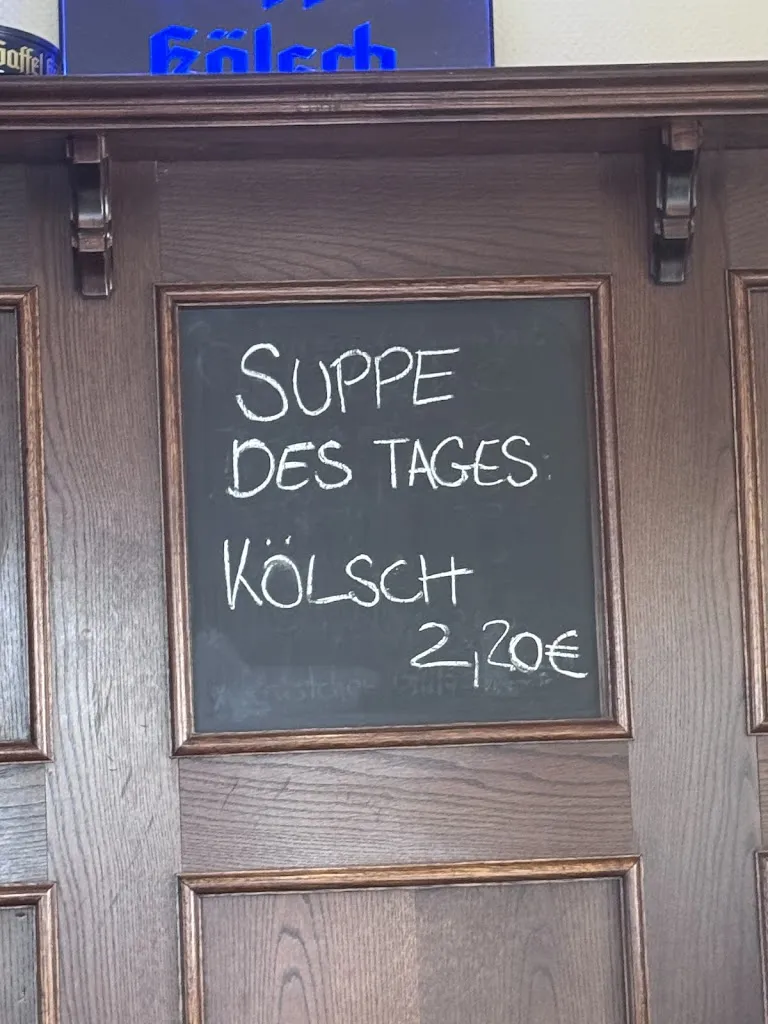 Gaffel
Kölsch
SUPPE
DES TAGES
KÖLSCH
2,20€